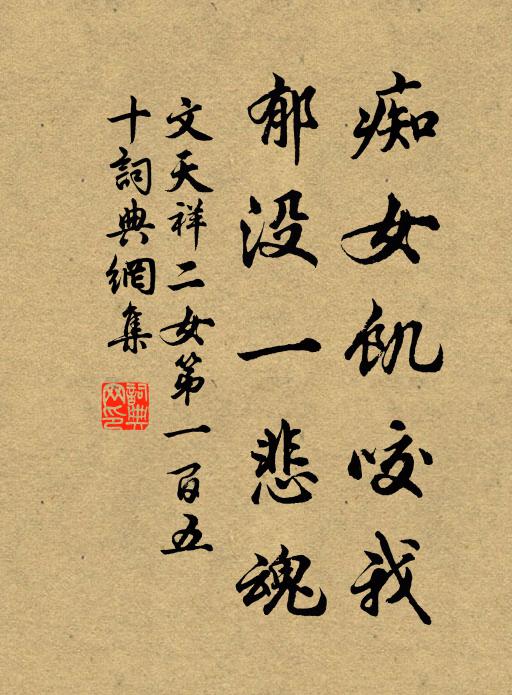 痴女饥咬我
郁没一悲魂
文天祥二女第一百五
十詞典網集
詞典網印